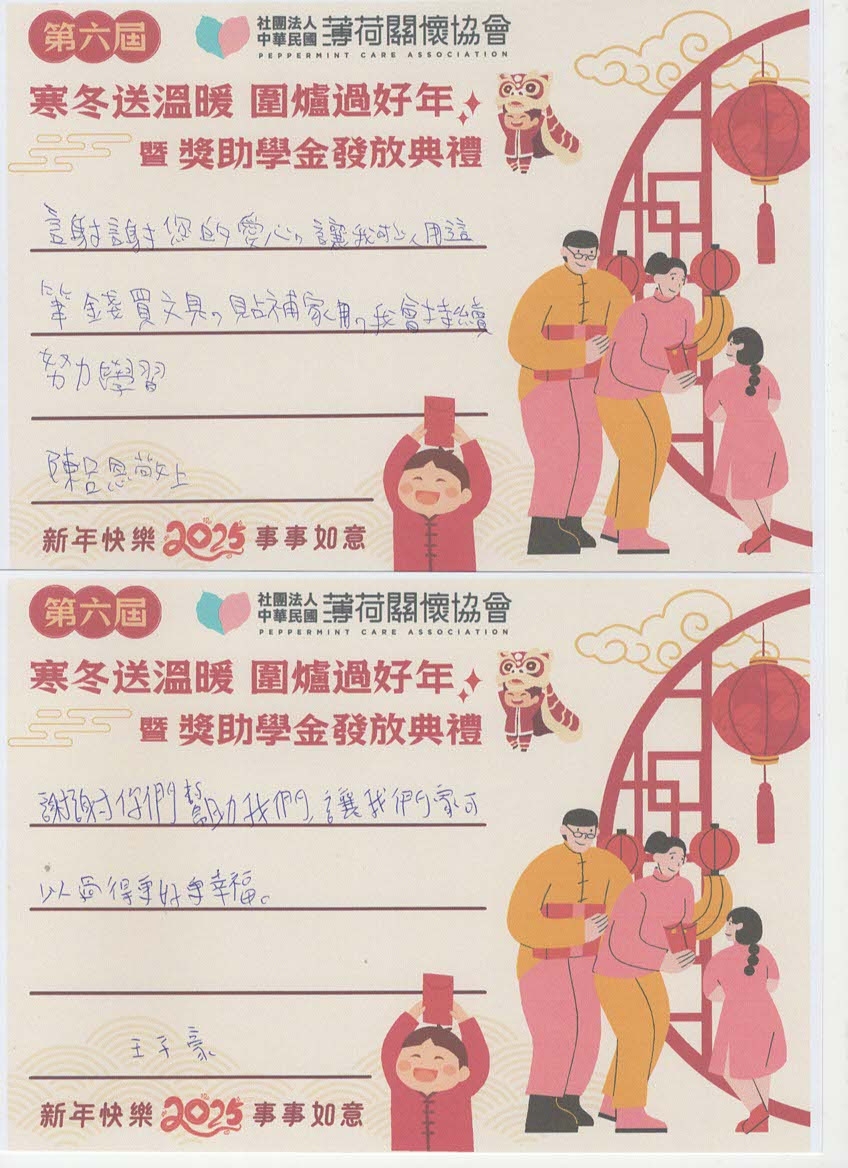 第六屆
社團法人
中華民國
薄荷關懷協會
PEPPERMINT CARE ASSOCIATION
寒冬送溫暖 圍爐過好年
暨 獎助學金發放典禮
謝謝您的愛心,讓我可以用這
筆錢買文具,貼補家用,我會持續
努力學習
陳呂恩敬上
新年快樂 2025 事事如意
第六屆
社團法人
中華民國
薄荷關懷協會
PEPPERMINT CARE ASSOCIATION
寒冬送溫暖 圍爐過好年
暨 獎助學金發放典禮
謝謝你們幫助我們,讓我們家可
以變得更好更幸福。
王子豪
新年快樂 2025 事事如意